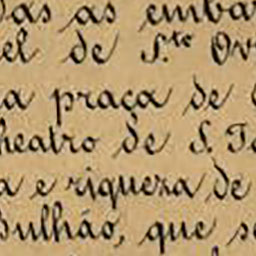 das as emba
el de S.te Ov
a praça de
heatro de S. Jo
a e riqueza de
Bulhão, que se